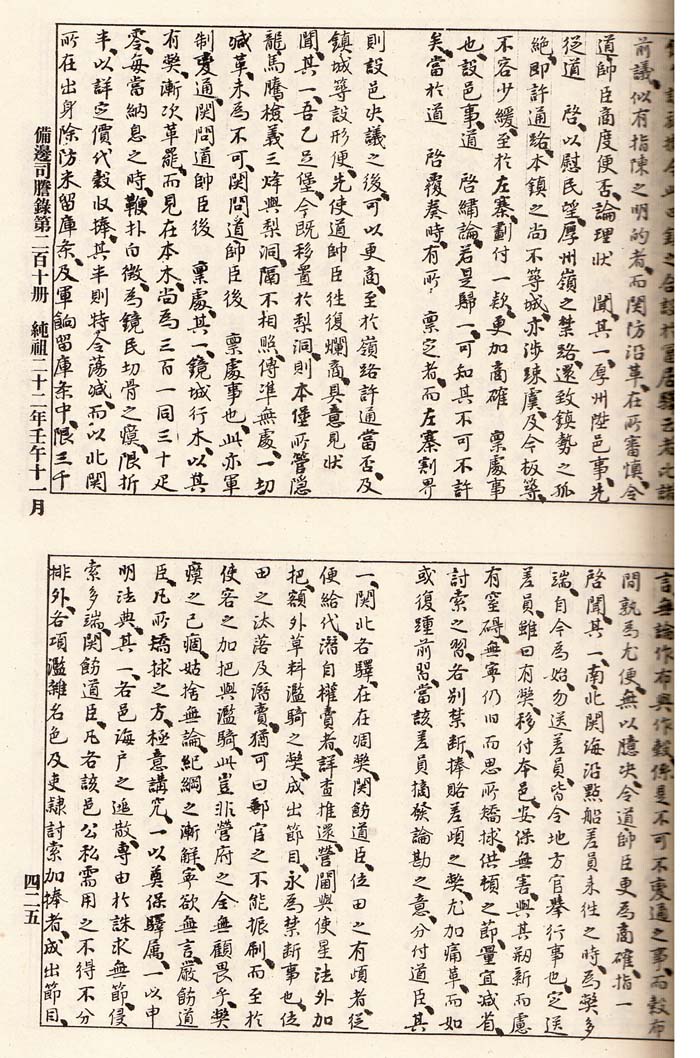 前議似有指陳之明的者而関防沿革在所審慎令
道帥臣商度便否論理狀　聞其一厚州陞邑事先
從道　啓以慰民望厚州嶺之禁路還致鎮勢之孤
絶即許通路本鎮之尚不等城亦涉踈虞及今板築
不容少緩至於左寨劃付一款更加商確　稟處事
也設邑事道　啓繡論若是歸一可知其不可不許
矣當於道　啓覆奏時有所　稟定者而左寨割界
則設邑决議之後可以更商至於嶺路許通當否及
鎮城等設形便先使道帥臣徃復爛商具意見狀
聞其一吾乙足堡今既移置於梨洞則本堡所管隠
龍馬騰檢義三烽與梨洞隔不相照傳準無處一切
减革未為不可関問道帥臣後　稟處事也此亦軍
制変通関問道帥臣後　稟處其一鏡城行木以其
有弊漸次革罷而見在本木尚為三百一同三十疋
零每當納息之時鞭扑白徴為鏡民切骨之瘼限折
半以詳定價代穀收捧其半則特令蕩减而以此関
所在出身除防米留庫条及軍餉留庫条中限三千
備邊司謄錄第二百十册　純祖二十二年壬午十一月
言無論作布與作穀係是不可不变通之事而穀布
間孰為尤便無以臆决令道帥臣更為商確指一
啓聞其一南北関海沿點船差員来徃之時為弊多
端自今為始勿送差員皆令地方官擧行事也定送
差員雖曰有弊移付本邑安保無害與其刱新而慮
有窒碍無寧仍旧而思所矯捄供頓之節量宜减省
討索之習各別禁断捧賂差頉之弊尤加痛革而如
或復踵前習當該差員摘發論勘之意分付道臣其
一関北各驛在在凋弊関飭道臣位田之有頉者從
便給代潛自權賣者詳查推還營閫與使星法外加
把額外草料濫騎之弊成出節目永為禁断事也位
田之汰落及潛賣猶可曰郵官之不能振刷而至於
使客之加把與濫騎此豈非營府之全無顧畏乎弊
瘼之已痼姑捨無論紀綱之漸解寧欲無言嚴飭道
臣凡所矯捄之方極意講究一以奠保驛属一以申
明法典其一各邑海户之逃散專由於誅求無節侵
索多端関飭道臣凡各該邑公私需用之不得不分
排外各項濫雜名色及吏隷討索加捧者成出節目
四二五